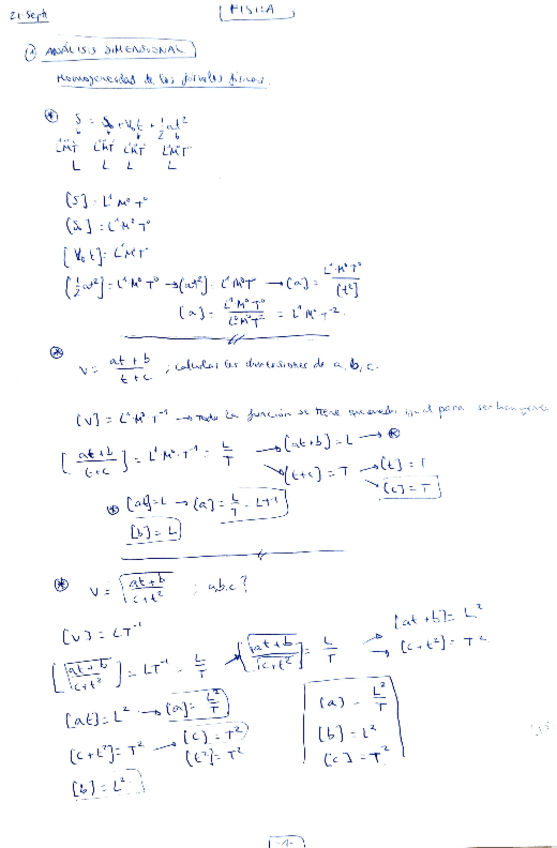 21-Sept
FISICA
① ANÁLISIS DIMENSIONAL
Homogeneidad de las físicas.
S = S₀ + V₀t + 1/2 at²
L L L L
[S] = L¹M⁰T⁰
[S₀] = L¹M⁰T⁰
[V₀t] = L¹M⁰T⁰
[1/2 at²] = L¹M⁰T⁰ → [at²] = L¹M⁰T⁰ → [a] = L¹M⁰T⁰/[t²]
[a] = L¹M⁰T⁰/L⁰M⁰T² = L¹M⁰T⁻²
V = at+b/t+c ; calcular las dimensiones de a, b, c.
[V] = L¹M⁰T⁻¹ → Toda la función se tiene igual para ser
[at+b/t+c] = L¹M⁰T⁻¹ = L/T → [at+b] = L → ⊛
[t+c] = T → [t] = T
[c] = T
⊛ [at] = L → [a] = L/T = LT⁻¹
[b] = L
V = √at+b/c+t² ; a b c?
[V] = LT⁻¹
[√at+b/c+t²] = LT⁻¹ = L/T → [√at+b/c+t²] = L/T → [at+b] = L²
→ [c+t²] = T²
[at] = L² → [a] = L²/T
[c+t²] = T² → [c] = T²
[t²] = T²
[b] = L²
[a] = L²/T
[b] = L²
[c] = T²
-1-